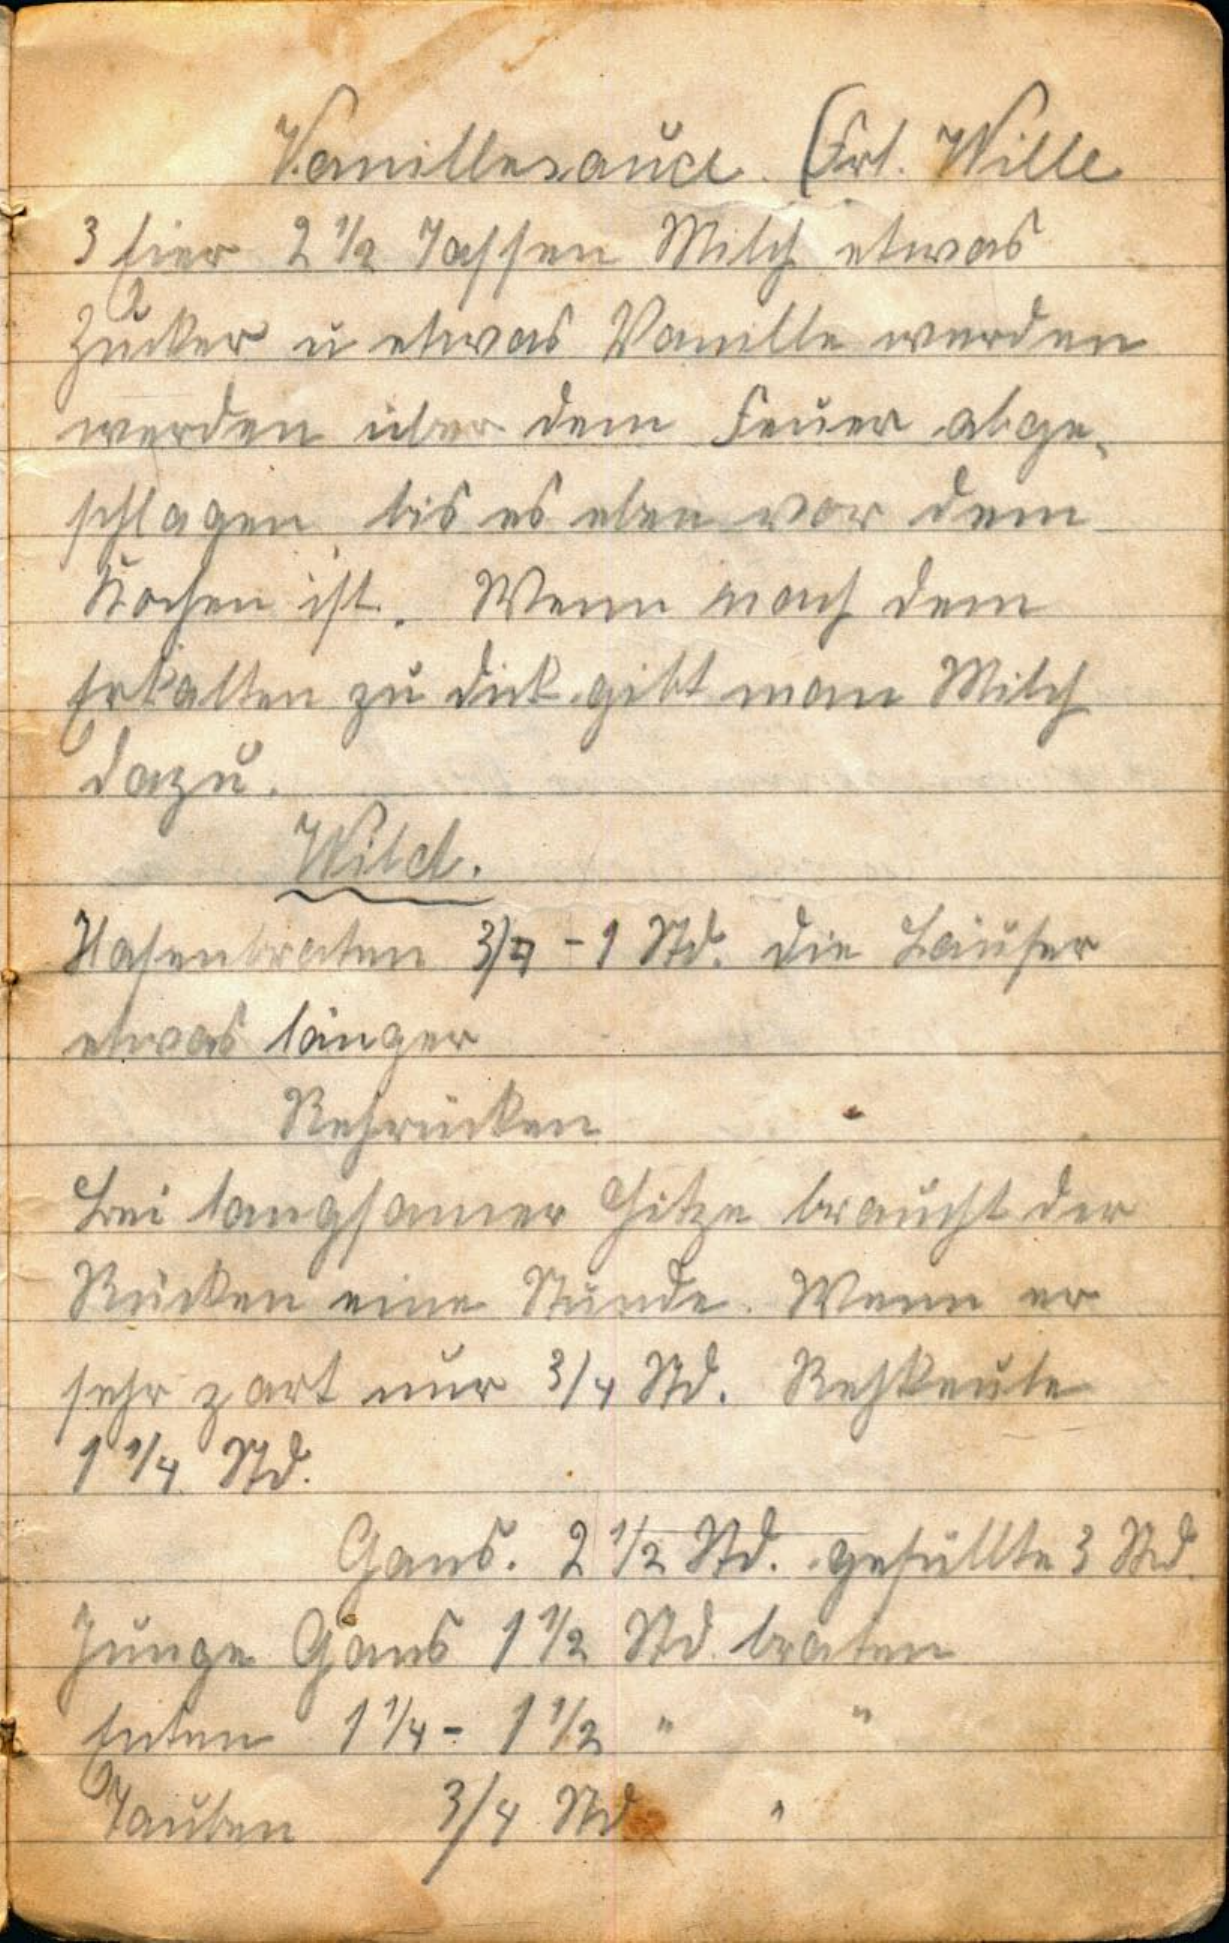 Vanillesauce. (Frl. Wille
3 Eier 2 1/2 Tassen Milch etwas
Zucker u etwas Vanille werden
werden über dem Feuer abge-
schlagen bis es eben vor dem
Kochen ist. Wenn nach dem
Erkalten zu dick gibt man Milch
dazu.
Wild.
Hasenbraten 3/4 - 1 Std. die Läufer
etwas länger
Rehrücken
Bei langsamer Hitze braucht der
Rücken eine Stunde. Wenn er
sehr zart nur 3/4 Std. Rehkeule
1 1/4 Std.
Gans. 2 1/2 Std. gefüllte 3 Std.
Junge Gans 1 1/2 Std braten
Enten 1 1/4 - 1 1/2 " "
Tauben 3/4 Std "